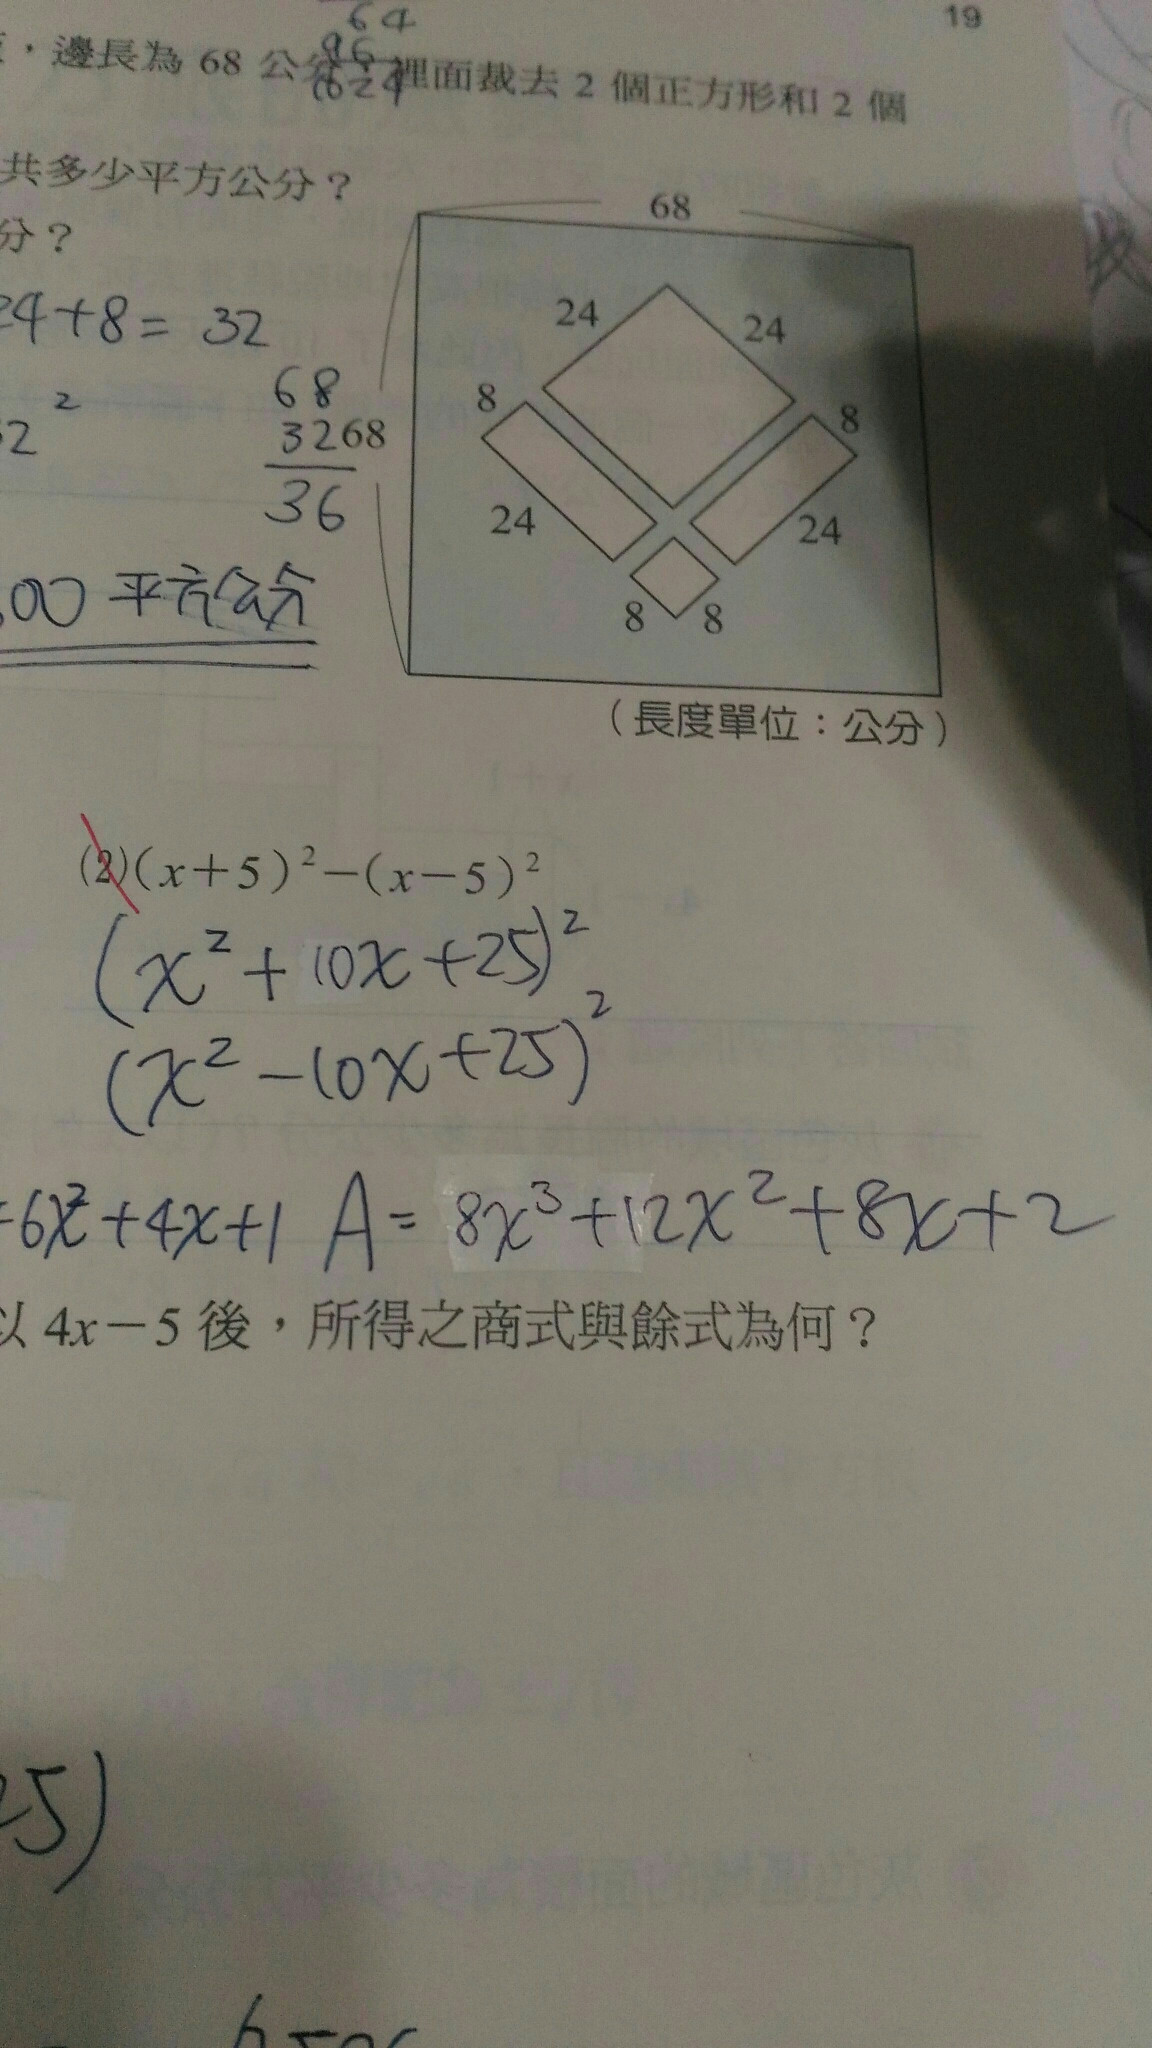 19
64
96
1024
,邊長為 68 公分,裡面裁去 2 個正方形和 2 個
共多少平方公分?
分?
24+8=32
68
32
36
2²
00 平方公分
68
68
24
24
8
8
24
24
8
8
(長度單位:公分)
(2)(x+5)²-(x-5)²
(x²+10x+25)²
(x²-10x+25)²
+6x²+4x+1 A=8x³+12x²+8x+2
以 4x-5 後,所得之商式與餘式為何?
25)